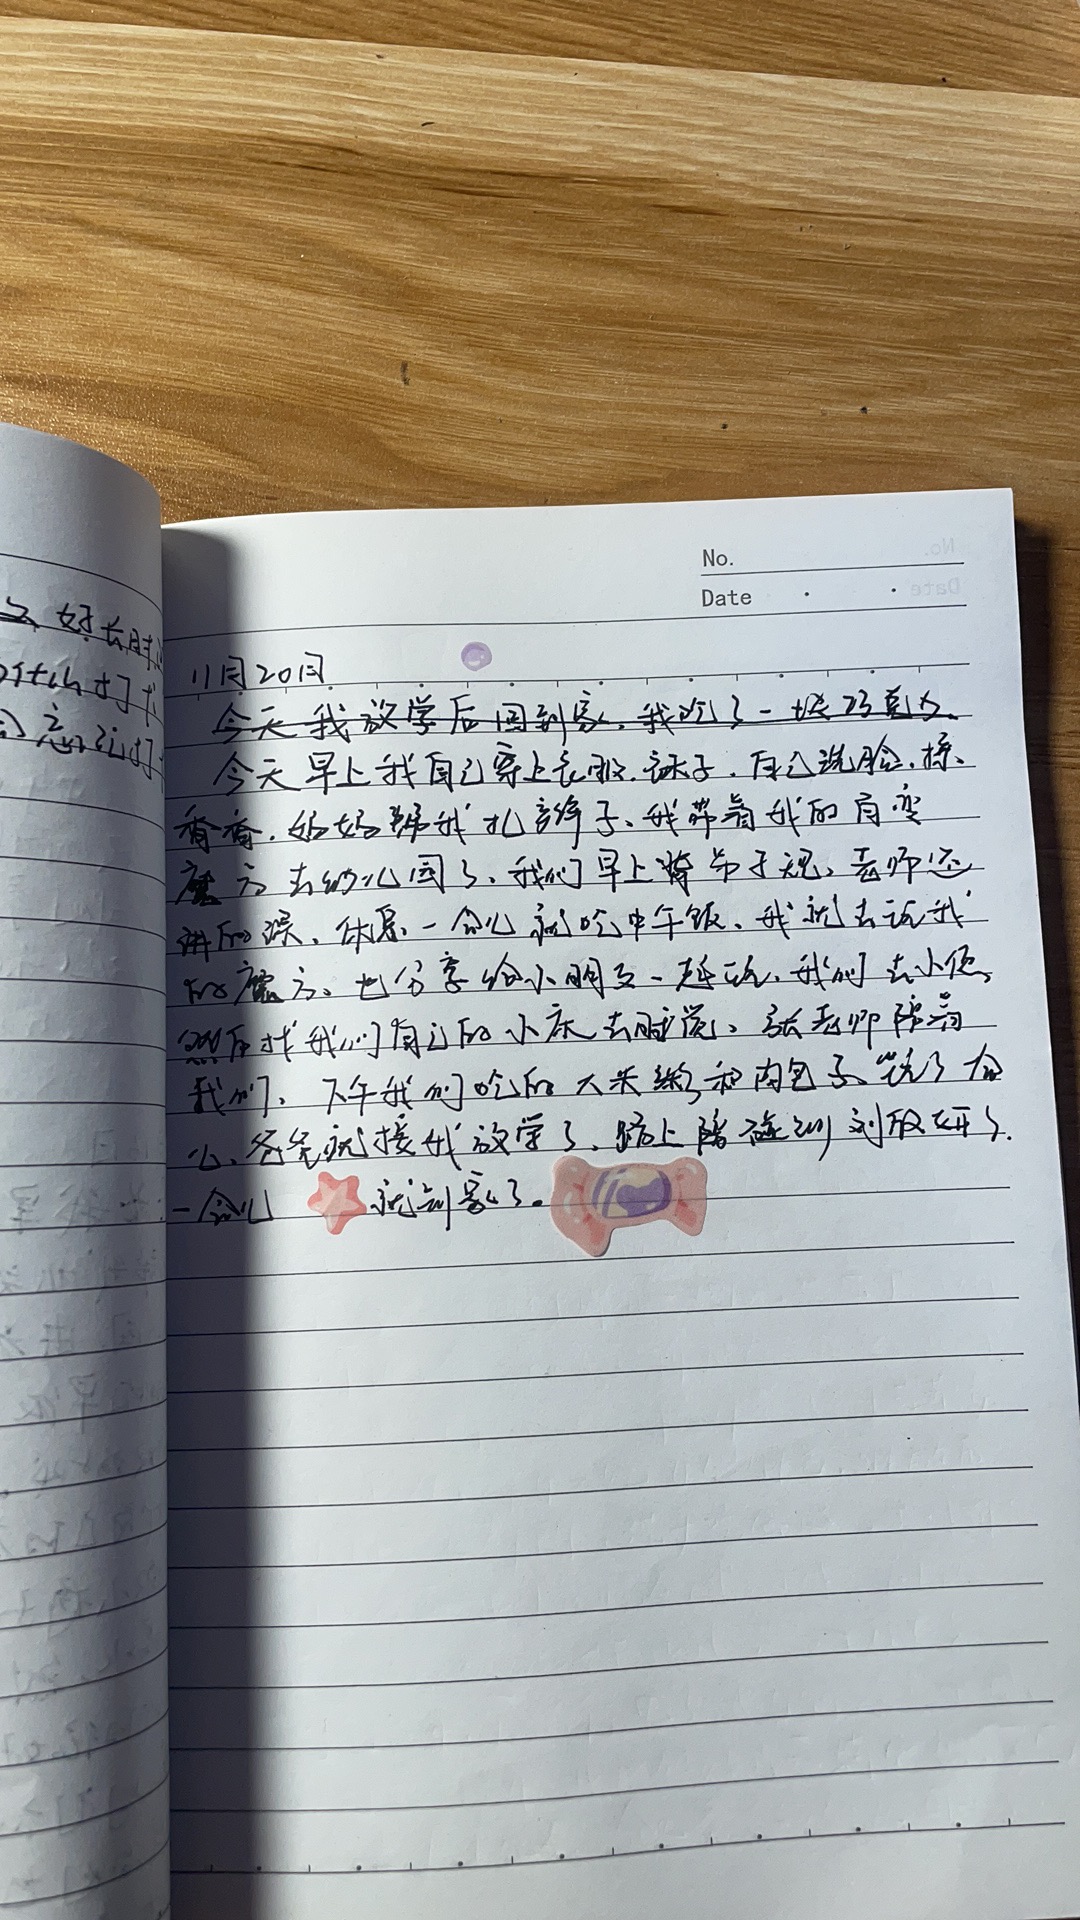 No.
Date
好长时
忘记打
11月20日
今天我放学后回到家、我吃了一块巧克力、
今天早上我自己穿上衣服、袜子、自己洗脸、擦
香香、妈妈帮我扎辫子、我带着我的百变
魔方去幼儿园了、我们早上背弟子规、老师还
讲的课、休息一会儿就吃中午饭、我就去玩我
的魔方、也分享给小朋友一起玩、我们去小便、
然后找我们自己的小床去睡觉、张老师陪着
我们、下午我们吃的大米粥和肉包子、玩了会
儿、爸爸就接我放学了、路上碰到刘放妍了.
一会儿 就到家了。